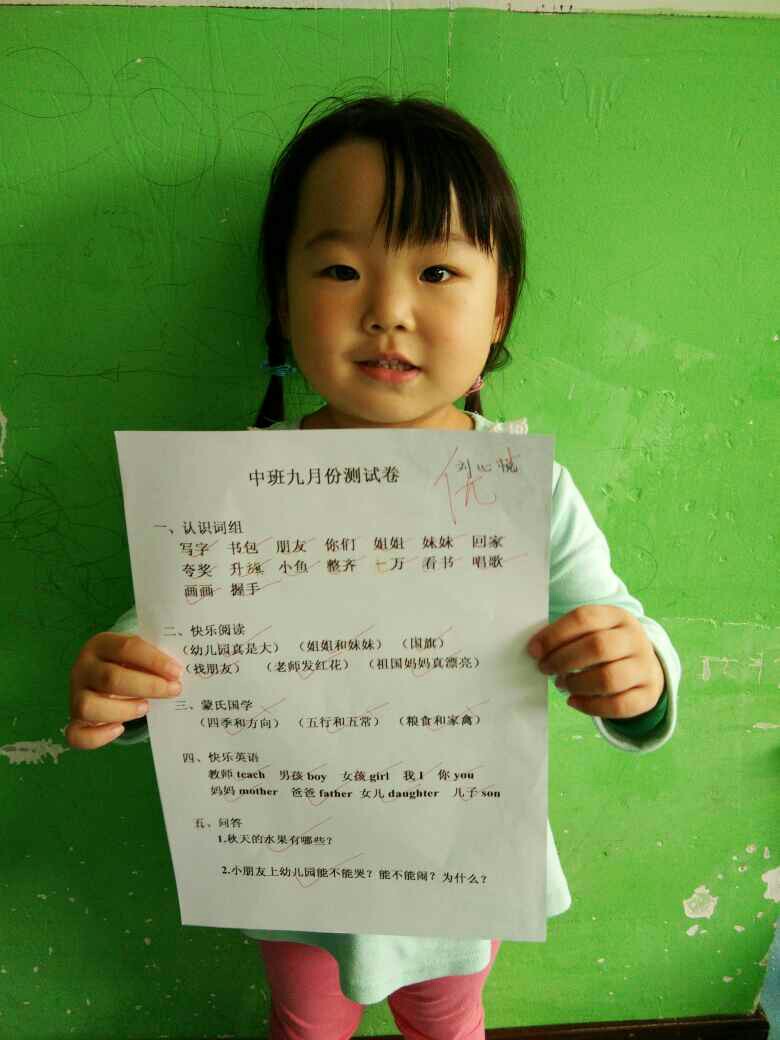 中班九月份测试卷
刘心悦
优
一、认识词组
写字 书包 朋友 你们 姐姐 妹妹 回家
夸奖 升旗 小鱼 整齐 十万 看书 唱歌
画画 握手
二、快乐阅读
（幼儿园真是大） （姐姐和妹妹） （国旗）
（找朋友） （老师发红花） （祖国妈妈真漂亮）
三、蒙氏国学
（四季和方向） （五行和五常） （粮食和家禽）
四、快乐英语
教师 teach 男孩 boy 女孩 girl 我 I 你 you
妈妈 mother 爸爸 father 女儿 daughter 儿子 son
五、问答
1.秋天的水果有哪些？
2.小朋友上幼儿园能不能哭？能不能闹？为什么？